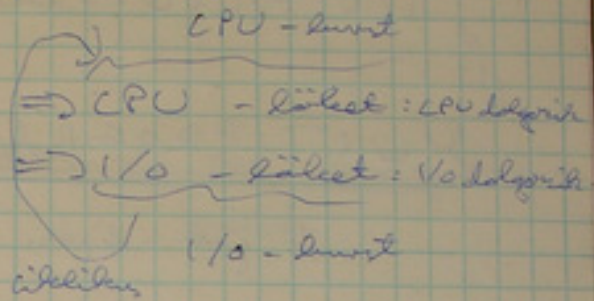 CPU - burst
⇒ CPU - löket : CPU dolgozik
⇒ I/O - löket : I/O dolgozik
I/O - burst
ciklikus